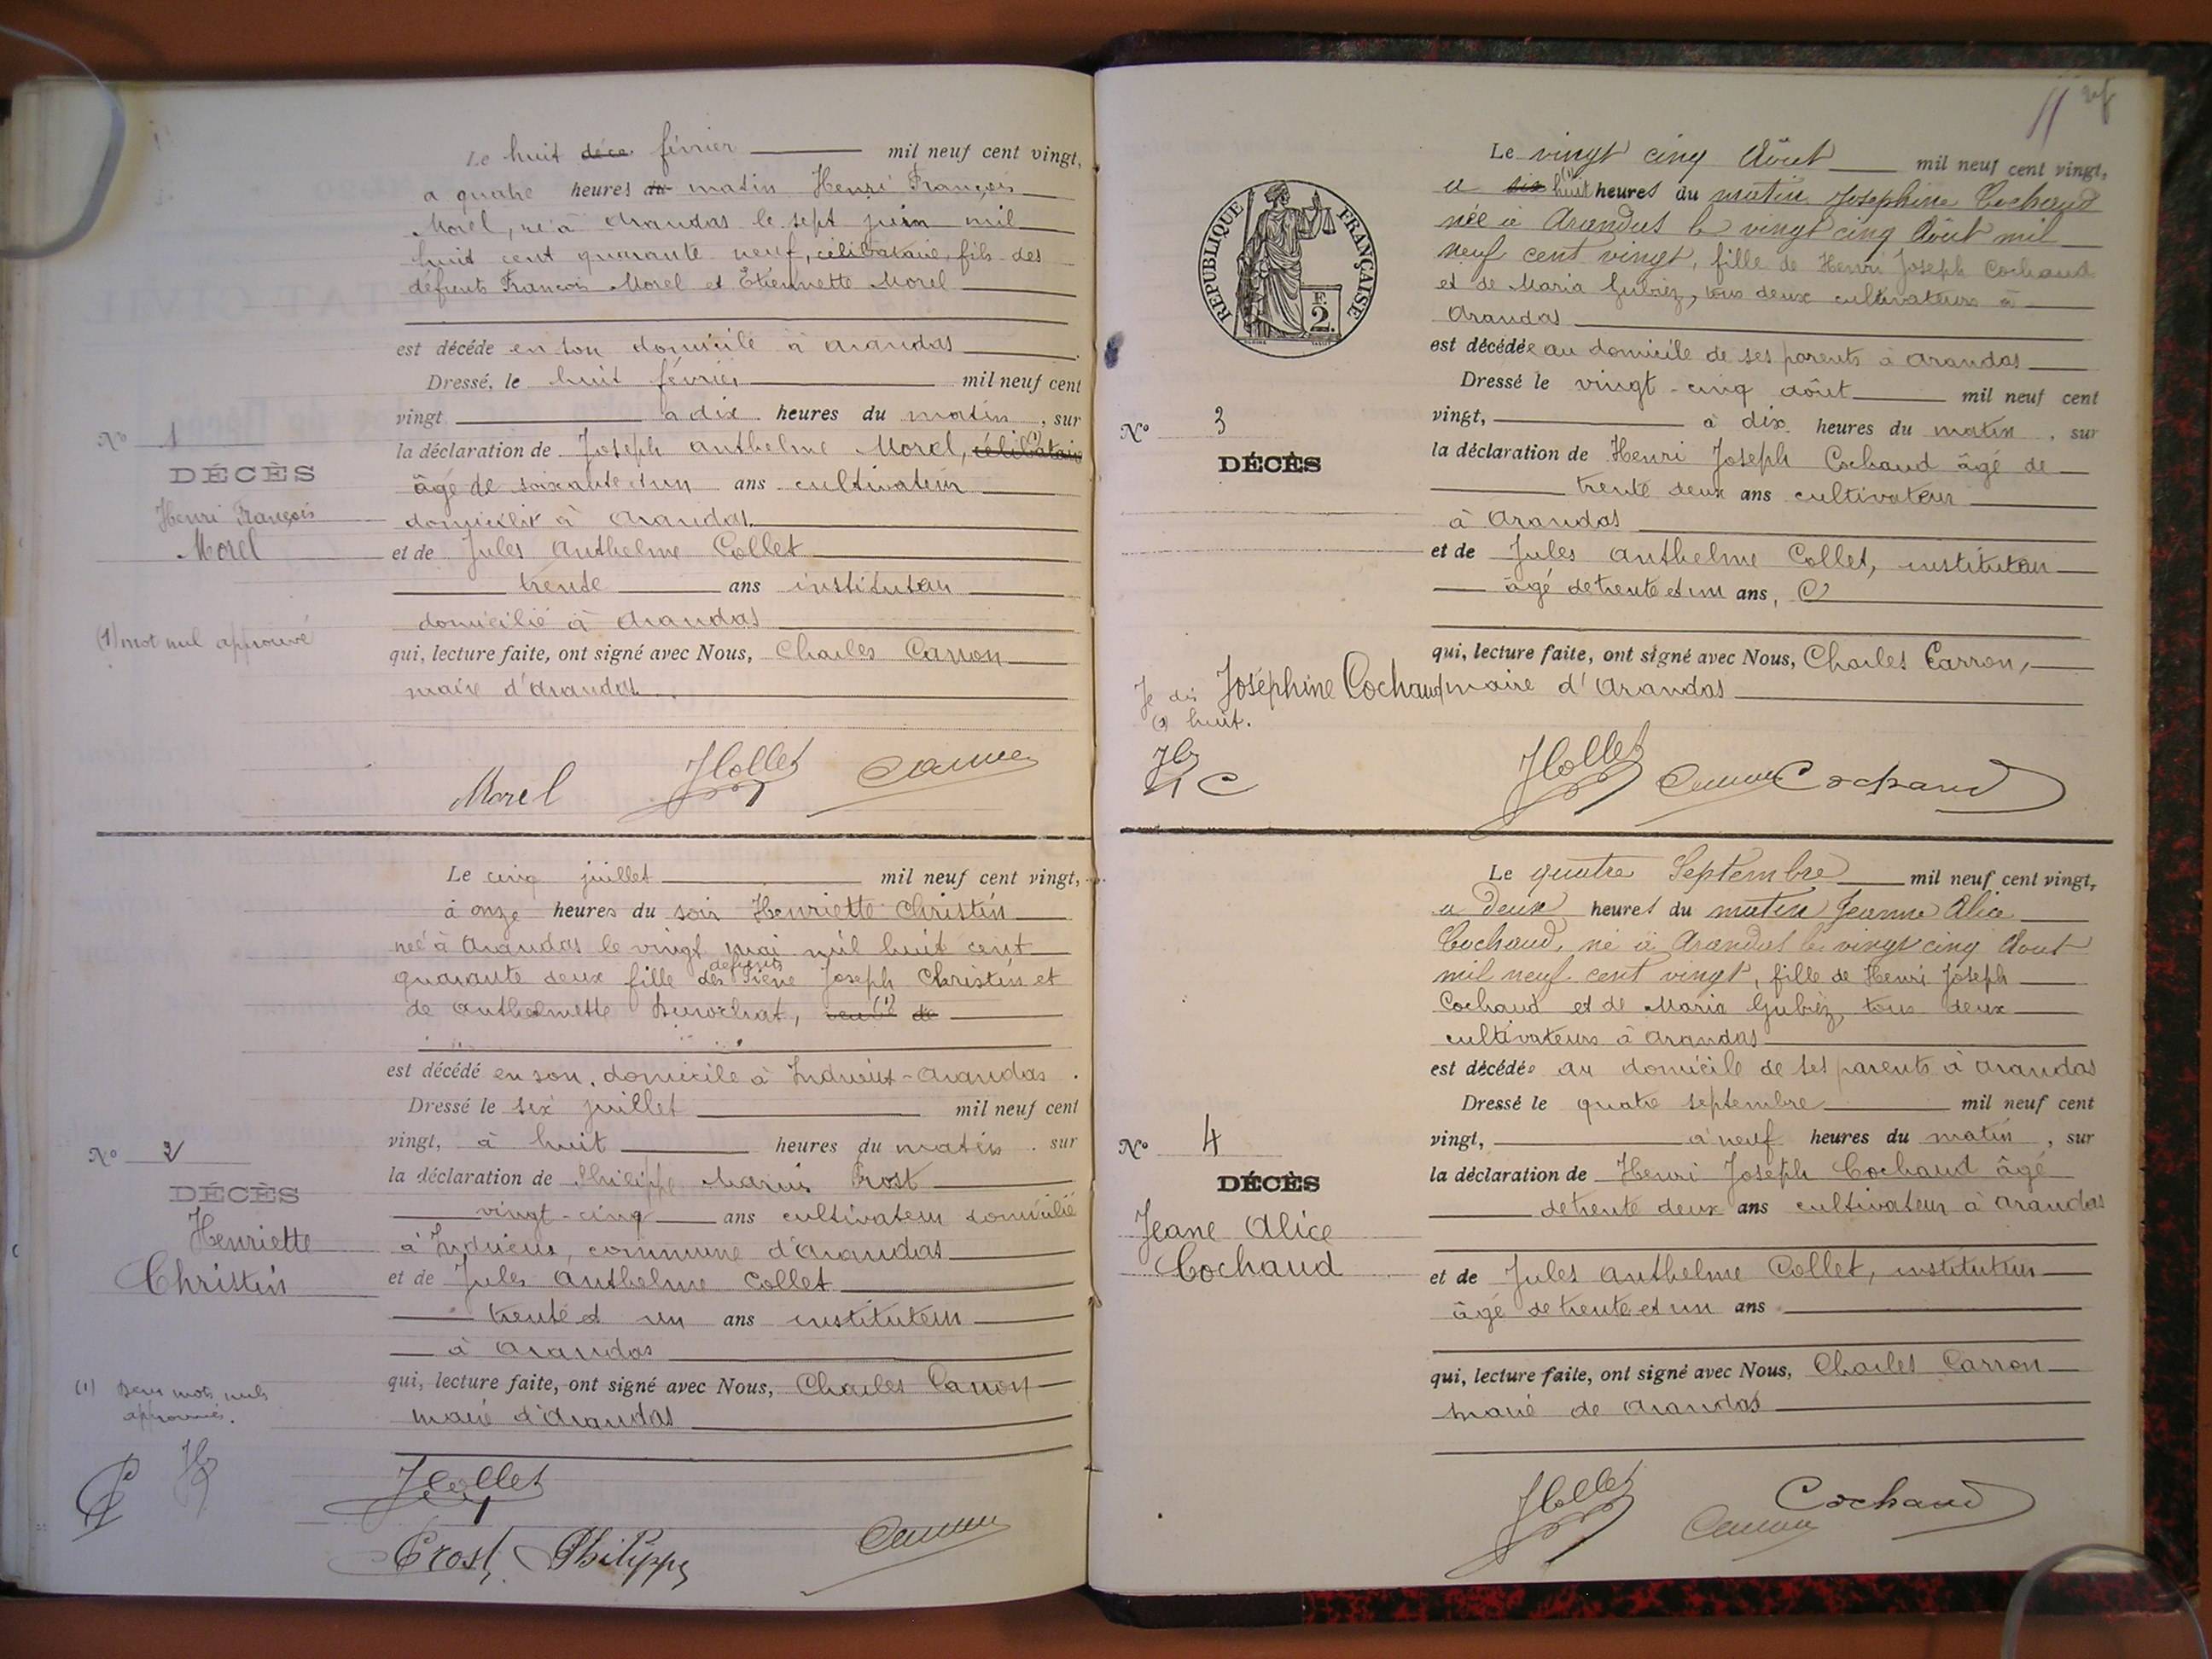 Le huit déce février mil neuf cent vingt,
a quatre heures du matin Henri François
Morel, né à Arandas le sept juin mil
huit cent quarante neuf, célibataire, fils des
défunts François Morel et Etiennette Morel
est décédé en son domicile à Arandas
Dressé, le huit février mil neuf cent
vingt à dix heures du matin, sur
la déclaration de Joseph Anthelme Morel, célibataire (1)
âgé de soixante et un ans cultivateur
domicilié à Arandas
et de Jules Anthelme Collet
trente ans instituteur
domicilié à Arandas
qui, lecture faite, ont signé avec Nous, Charles Carron
maire d'Arandas.
N° 1
DÉCÈS
Henri François
Morel
(1) mot nul approuvé
Morel JCollet Carron
Le cinq juillet mil neuf cent vingt,
à onze heures du soir Henriette Christin
née à Arandas le vingt mai mil huit cent
quarante deux fille des défunts Pierre Joseph Christin et
de Anthelmette Durochat, (1) de
est décédé en son domicile à Indrieux-Arandas.
Dressé le six juillet mil neuf cent
vingt, à huit heures du matin, sur
la déclaration de Philippe Marius Prost
vingt-cinq ans cultivateur domicilié
à Indrieux, commune d'Arandas
et de Jules Anthelme Collet
trente et un ans instituteur
à Arandas
qui, lecture faite, ont signé avec Nous, Charles Carron
maire d'Arandas
N° 2
DÉCÈS
Henriette
Christin
(1) Deux mots nuls
approuvés.
JCollet
Prost, Philippe Carron
11
REPUBLIQUE FRANÇAISE
F.
2.
Le vingt cinq Août mil neuf cent vingt,
a six huit (1) heures du matin Josephine Cochaud
née à Arandas le vingt cinq Août mil
neuf cent vingt, fille de Henri Joseph Cochaud
et de Maria Gubiez, tous deux cultivateurs à
Arandas
est décédée au domicile de ses parents à Arandas
Dressé le vingt-cinq août mil neuf cent
vingt, à dix heures du matin, sur
la déclaration de Henri Joseph Cochaud âgé de
trente deux ans cultivateur
à Arandas
et de Jules Anthelme Collet, instituteur
âgé de trente et un ans,
qui, lecture faite, ont signé avec Nous, Charles Carron,
maire d'Arandas
N° 3
DÉCÈS
Je dis Joséphine Cochaud
(1) huit.
JCollet Carron Cochaud
Le quatre Septembre mil neuf cent vingt,
a Deux heures du matin Jeanne Alice
Cochaud, né à Arandas le vingt cinq Aout
mil neuf cent vingt, fille de Henri Joseph
Cochaud et de Maria Gubiez, tous deux
cultivateurs à Arandas
est décédée au domicile de ses parents à Arandas
Dressé le quatre septembre mil neuf cent
vingt, à neuf heures du matin, sur
la déclaration de Henri Joseph Cochaud âgé
de trente deux ans cultivateur à Arandas
et de Jules Anthelme Collet, instituteur
âgé de trente et un ans
qui, lecture faite, ont signé avec Nous, Charles Carron
maire de Arandas
N° 4
DÉCÈS
Jeane Alice
Cochaud
JCollet Carron Cochaud